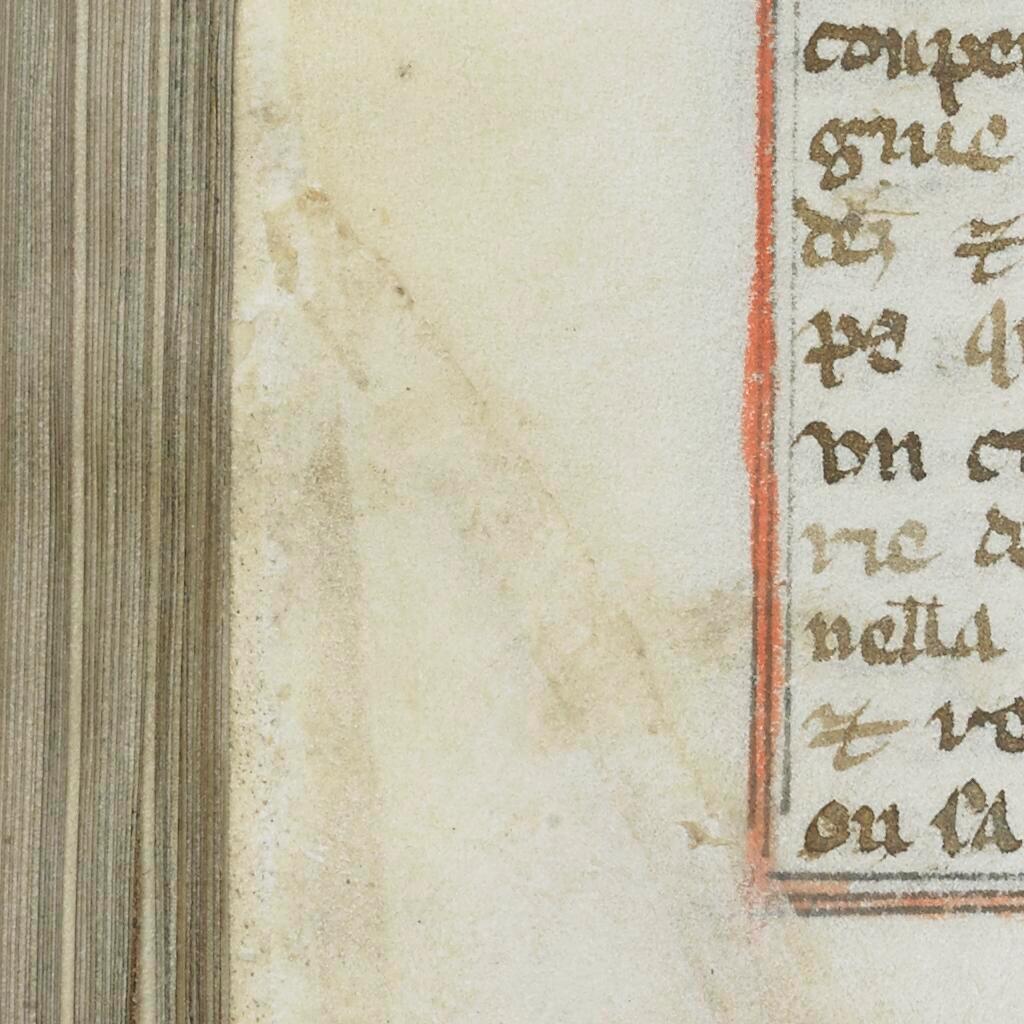 conper
gnie
dei ⁊
pe q
vn c
rie de
nella
⁊ ve
ou sa